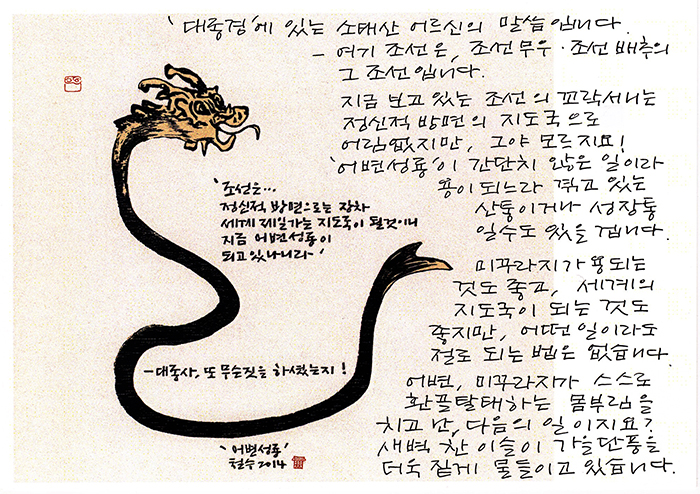 '대종경'에 있는 소태산 어르신의 말씀입니다.
- 여기 조선은, 조선무우·조선배추의
그 조선입니다.
지금 보고 있는 조선의 꼬락서니는
정신적 방면의 지도국으로
어림없지만, 그야 모르지요!
'어변성룡'이 간단치 않은 일이라
용이 되느라 겪고 있는
산통이거나 성장통
일수도 있을 겝니다.
미꾸라지가 용되는
것도 좋고, 세계의
지도국이 되는 것도
좋지만, 어떤일이라도
절로 되는 법은 없습니다.
어변, 미꾸라지가 스스로
환골탈태하는 몸부림을
치고 난, 다음의 일이지요?
새벽 찬 이슬이 가을단풍을
더욱 짙게 물들이고 있습니다.
'조선은...
정신적 방면으로는 장차
세계 제일가는 지도국이 될것이니
지금 어변성룡이
되고 있나니라-'
-대종사, 또 무슨짓을 하셨는지!
'어변성룡'
철수 2014